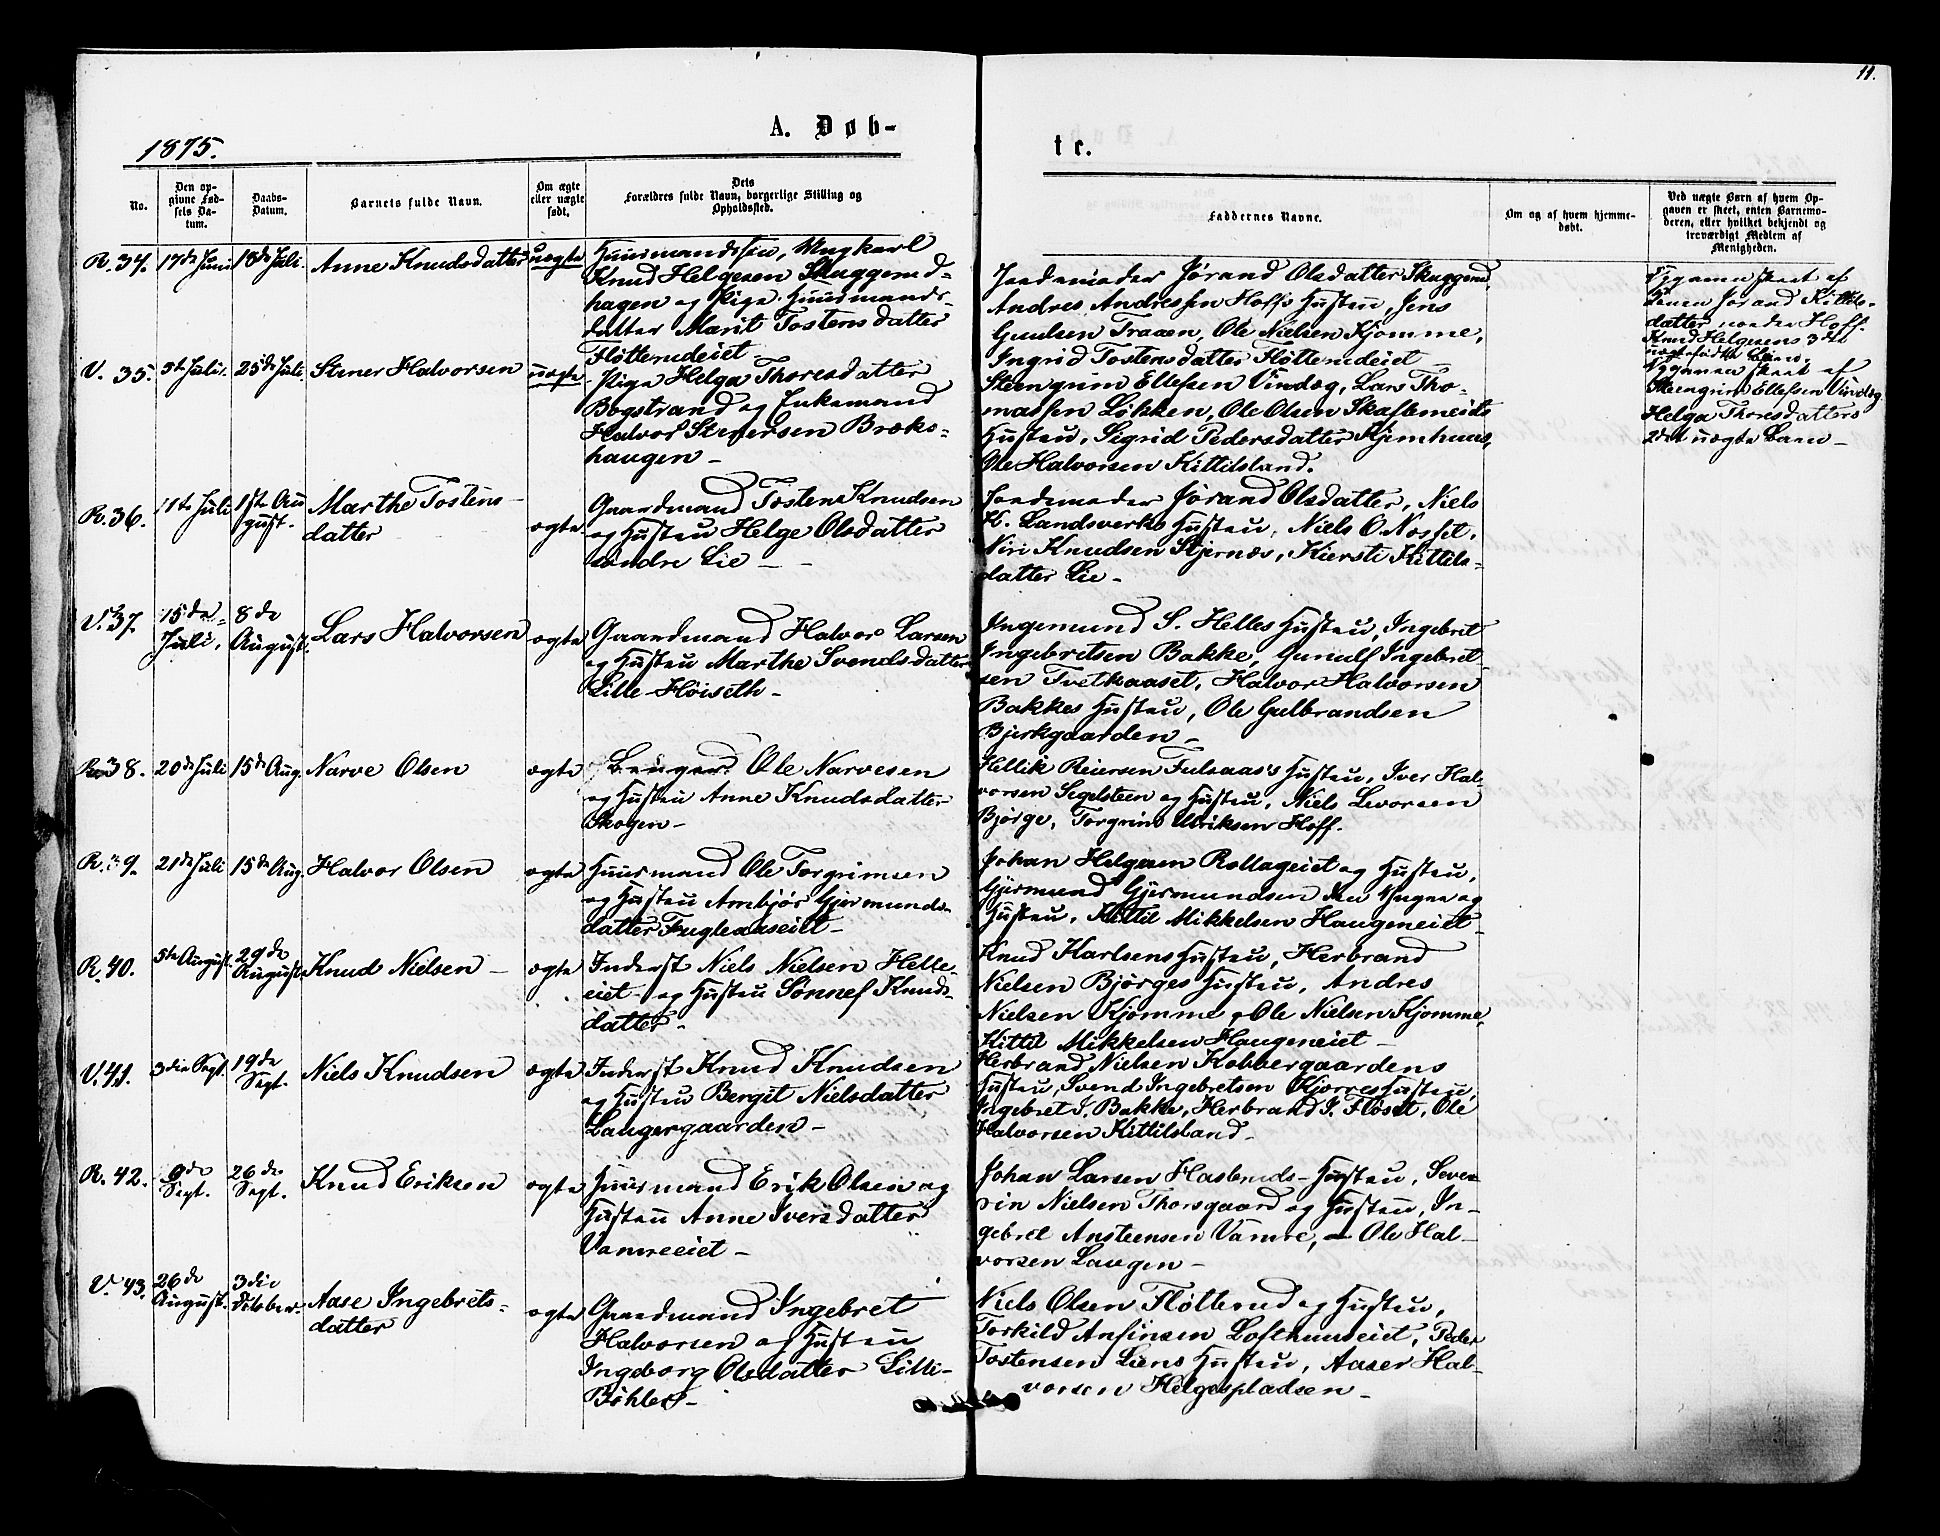 11.
1875.
A. Døb-
te.
No.
Den op-
givne Fød-
sels Da-
tum.
Daabs-
Datum.
Barnets fulde Navn.
Om ægte
eller uægte
født.
Dets
Forældres fulde Navn, borgerlige Stilling og
Opholdssted.
Faddernes Navne.
Om og af hvem hjemme-
døbt.
Ved uægte Børn af hvem Op-
gaven er skeet, enten Barnemo-
deren, eller hvilket bekjendt og
troværdigt Medlem af
Menigheden.
R. 34. 17de Juni 18de Juli. Anne Knudsdatter uægte
Huusmandssøn, Ungkarl
Knud Helgesen Skuggerud-
hagen og Pige Huusmands-
datter Marit Tostensdatter
Fløtterudeiet
Jordemoder Jørand Olsdatter Skuggerud,
Andres Andressen Hoffs Hustru, Jens
Guulsen Traaen, Ole Nielsen Kjomme,
Ingrid Tostensdatter Fløtterudeiet
Opgaven skeet af
Hoff.
Knud Helgesens 3die
uægtefødte Barn.
V. 35. 5te Juli. 25de Juli. Stener Halvorsen uægte
Pige Helga Thoresdatter
Bogstrand og Enkemand
Halvor Stenersen Bræks-
haugen
Steengrim Ellefsen Vindeg, Lars Tho-
massen Løkken, Ole Olsen
Hustru, Sigrid Pedersdatter
Ole Halvorsen Kittilsland.
Opgaven skeet af
Steengrim Ellefsen Vindeg
Helga Thoresdatters
2det uægte Barn
R. 36. 11te Juli 1ste Au-
gust. Marthe Tostens-
datter ægte
Gaardmand Tosten Knudsen
og Hustru Helge Olsdatter
søndre Lie
Jordemoder Jørand Olsdatter, Niels
K. Landsverks Hustru, Niels O. Nosset,
Niri Knudsen Stjernes, Kiersti Kittils-
datter Lie
V. 37. 15de
Juli. 8de
August. Lars Halvorsen ægte
Gaardmand Halvor Larsen
og Hustru Marthe Svendsdatter
Lille Høiseth
Ingemund S. Helles Hustru, Ingebret
Ingebretsen Bakke, Gunulf Ingebret-
sen Tvetkaaset, Halvor Halvorsen
Bakkes Hustru, Ole Gulbrandsen
Bjerkgaarden
R. 38. 20de Juli 15de Aug. Narve Olsen ægte
Ole Narvesen
og Hustru Anne Knudsdatter
Skogen
Hellik Reiersen Fulsaas's Hustru, Iver Hal-
vorsen Segelsteen og Hustru, Niels Levorsen
Bjørge, Torgrim Ulriksen Hoff.
R. 39. 21de Juli 15de Aug. Halvor Olsen ægte
Huusmand Ole Torgrimsen
og Hustru Ambjør Gjermunds-
datter Fugleaaseiet
Johan Helgesen Rollageiet og Hustru,
Gjermund Gjermundsen den Yngre og
Hustru, Kittil Mikkelsen Haugeneiet
R. 40. 5te August. 29de
August. Knud Nielsen ægte
Inderst Niels Nielsen Helle-
eiet og Hustru Sønnef Knuds-
datter
Knud Karlsens Hustru, Herbrand
Nielsen Bjørges Hustru, Andres
Nielsen Kjomme, Ole Nielsen Kjomme,
Kittil Mikkelsen Haugeneiet
V. 41. 3die Sept. 19de
Sept. Niels Knudsen ægte
Inderst Knud Knudsen
og Hustru Bergit Nielsdatter
Laugergaarden
Herbrand Nielsen Kobbergaardens
Hustru, Svend Ingebretsen Kjorres Hustru,
Ingebret I. Bakke, Herbrand I. Floset, Ole
Halvorsen Kittilsland
R. 42. 6de
Sept. 26de
Sept. Knud Eriksen ægte
Huusmand Erik Olsen og
Hustru Anne Iversdatter
Vamreeiet
Johan Larsen Hasleruds Hustru, Seve-
rin Nielsen Thorsgaard og Hustru, In-
gebret Ansteensen Vamre, Ole Hal-
vorsen Laugen
V. 43. 26de
August. 3die
October. Aase Ingebrets-
datter ægte
Gaardmand Ingebret
Halvorsen og Hustru
Ingeborg Olsdatter Lille-
Bøhler
Niels Olsen Fløtterud og Hustru,
Torkild Anfinsen Lofthuuseiet, Peder
Tostensen Liens Hustru, Aaser Hal-
vorsen Helgespladsen